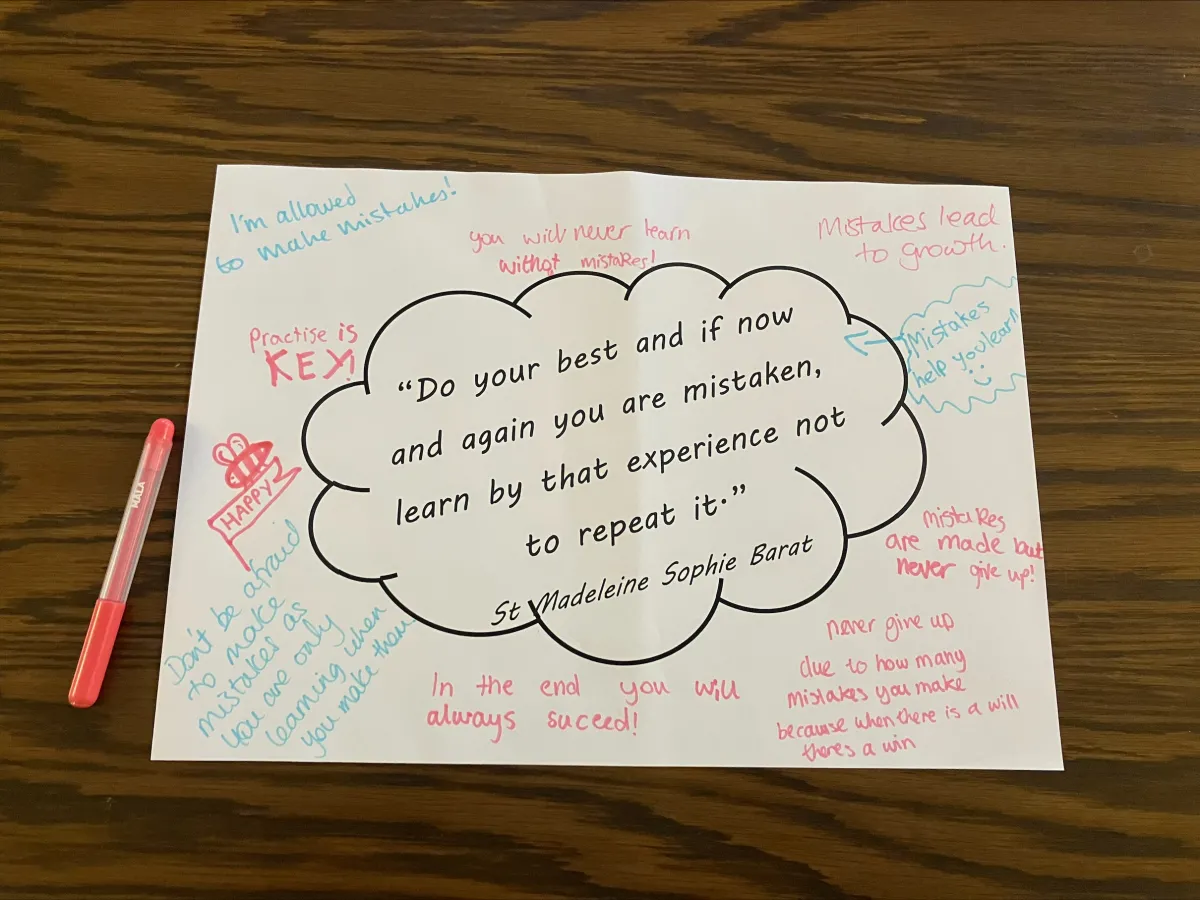 I'm allowed
to make mistakes!
you will never learn
without mistakes!
Mistakes lead
to growth.
Practise is
KEY!
Mistakes
help you learn
"Do your best and if now
and again you are mistaken,
learn by that experience not
to repeat it."
St Madeleine Sophie Barat
HAPPY
MALA
Don't be afraid
to make
mistakes as
you are only
learning when
you make them
mistakes
are made but
never give up!
In the end you will
always suceed!
never give up
due to how many
mistakes you make
because when there is a will
theres a win